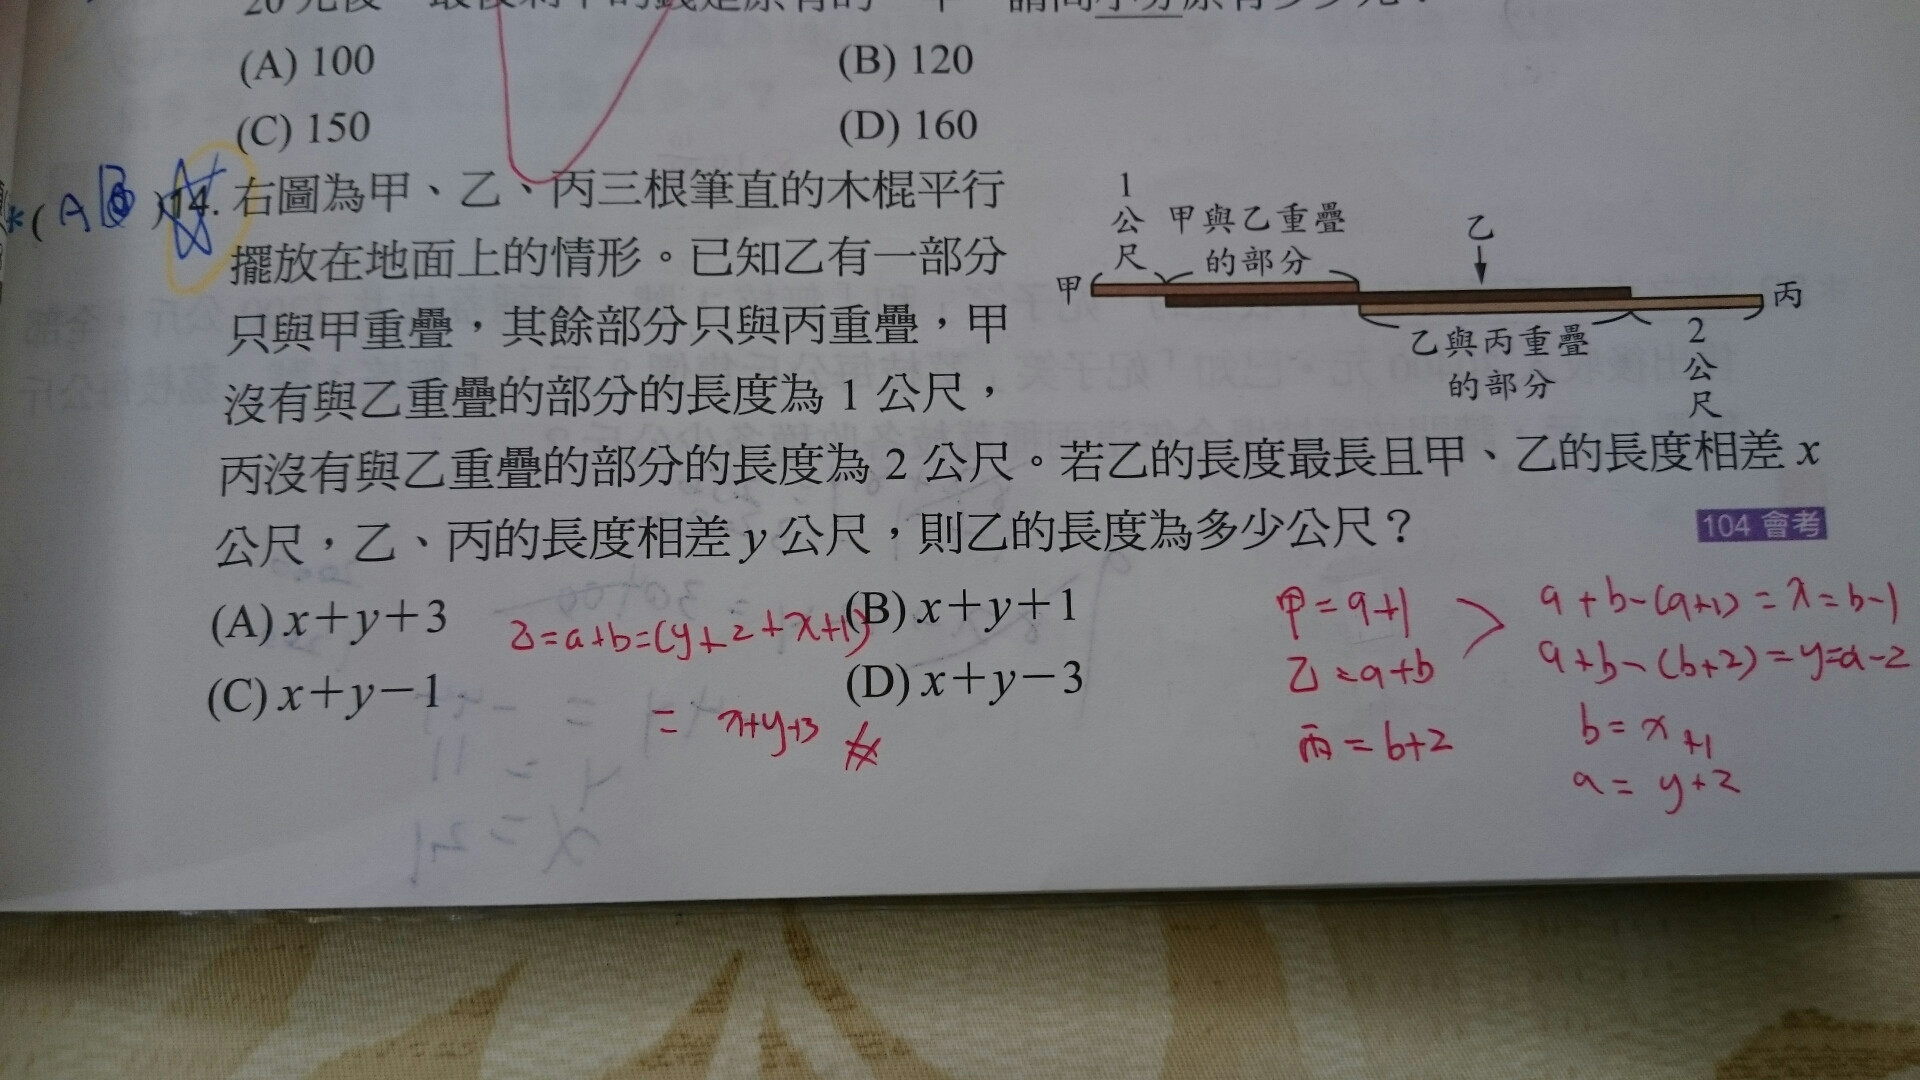 (A) 100
(B) 120
(C) 150
(D) 160
*( A B )14. 右圖為甲、乙、丙三根筆直的木棍平行
擺放在地面上的情形。已知乙有一部分
只與甲重疊，其餘部分只與丙重疊，甲
沒有與乙重疊的部分的長度為 1 公尺，
丙沒有與乙重疊的部分的長度為 2 公尺。若乙的長度最長且甲、乙的長度相差 x
公尺，乙、丙的長度相差 y 公尺，則乙的長度為多少公尺？
104 會考
1
公
尺
甲與乙重疊
的部分
乙
甲
丙
乙與丙重疊
的部分
2
公
尺
(A) x＋y＋3
(B) x＋y＋1
(C) x＋y－1
(D) x＋y－3
乙=a+b=(y+2+x+1)
= x+y+3
甲=a+1
乙=a+b
丙=b+2
a+b-(a+1)=x=b-1
a+b-(b+2)=y=a-2
b=x+1
a=y+2